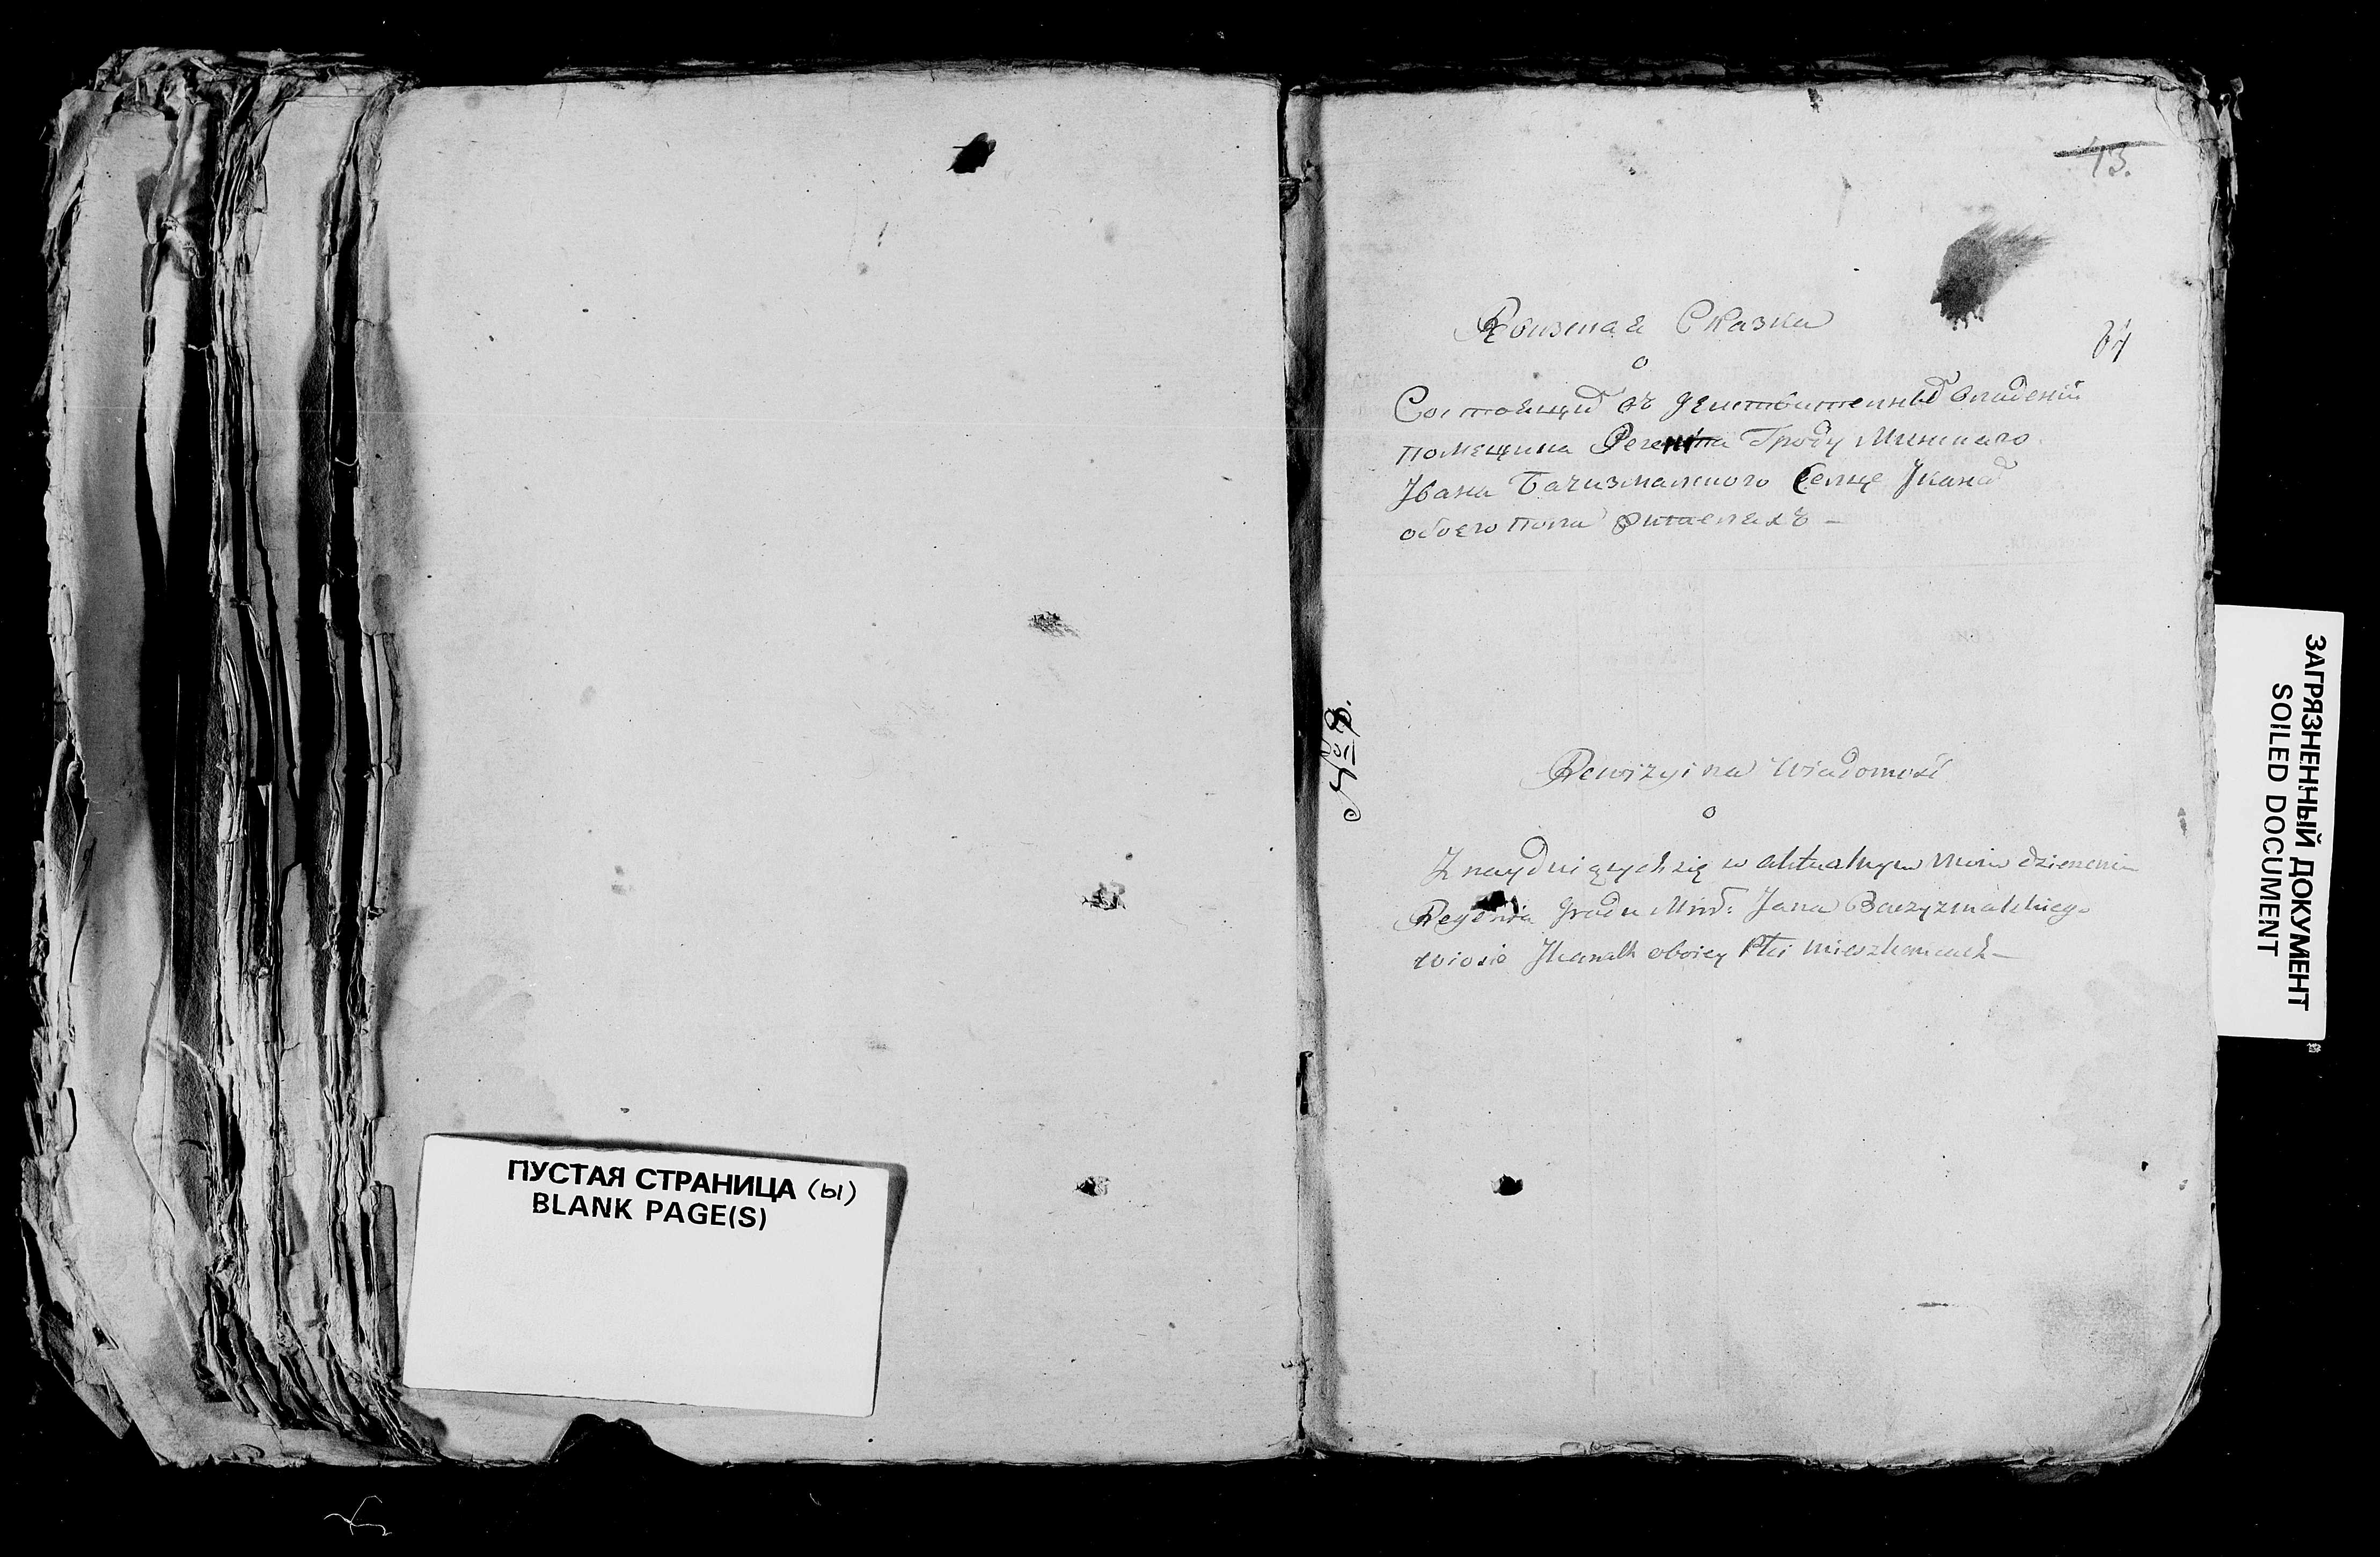 ПУСТАЯ СТРАНИЦА (ы)
BLANK PAGE(S)
43.
Ревизмая Сказка
о
67
Состоящи въ действителны владении
помещика Регента Гроду Минскаго
Ивана Бачизмалского Селце Икана
обоего пола жителяхъ –
№ 8.
Rewizyina Wiadomość
o
Znayduiących się w aktualnym dzierzeniu
Regenta Grodu Miń: Jana Baczyzmalskiego
wiosce Ikanach oboiey Płci mieszkańcach –
ЗАГРЯЗНЕННЫЙ ДОКУМЕНТ
SOILED DOCUMENT